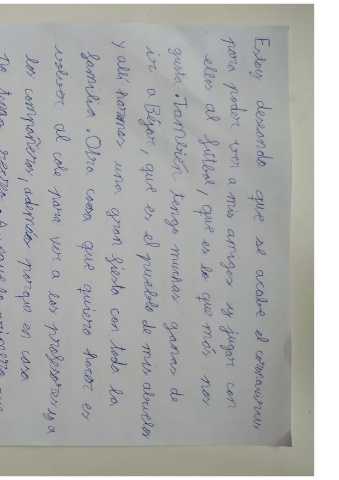 Estoy deseando que se acabe el coronavirus
para poder ver a mis amigos y jugar con
ellos al fútbol, que es lo que más nos
gusta. También tengo muchas ganas de
ir a Béjar, que es el pueblo de mis abuelos
y allí haremos una gran fiesta con toda la
familia. Otra cosa que quiero hacer es
volver al cole para ver a los profesores y a
los compañeros, además porque en casa